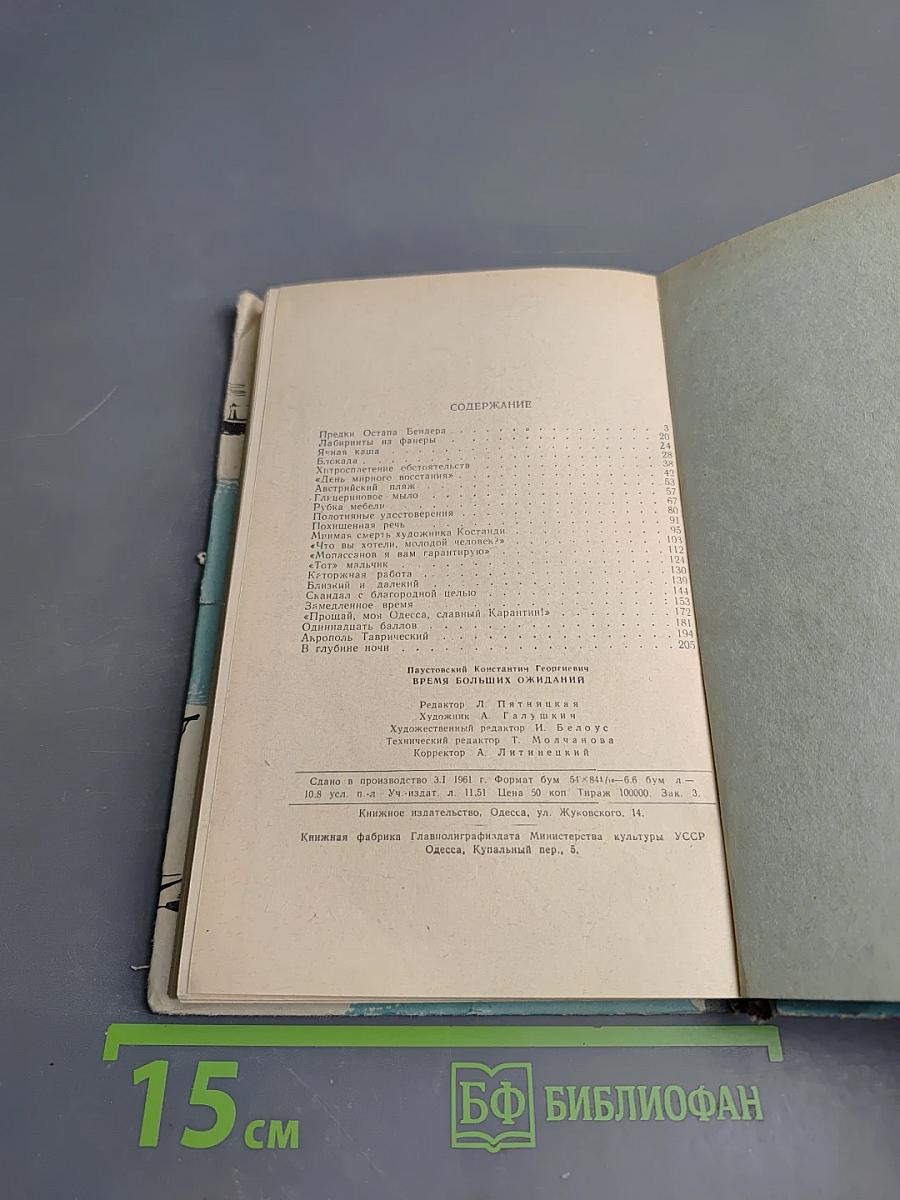 СОДЕРЖАНИЕ
Предки Остапа Бендера . . . . . . . . . . . 3
Лабиринты из фанеры . . . . . . . . . . . 20
Ячная каша . . . . . . . . . . . 24
Блокада . . . . . . . . . . . 28
Хитросплетение обстоятельств . . . . . . . . . . . 38
«День мирного восстания» . . . . . . . . . . . 42
Австрийский пляж . . . . . . . . . . . 53
Глицериновое мыло . . . . . . . . . . . 57
Рубка мебели . . . . . . . . . . . 67
Полотняные удостоверения . . . . . . . . . . . 80
Похищенная речь . . . . . . . . . . . 91
Мнимая смерть художника Костанди . . . . . . . . . . . 95
«Что вы хотели, молодой человек?» . . . . . . . . . . . 103
«Мопассанов я вам гарантирую» . . . . . . . . . . . 112
«Тот» мальчик . . . . . . . . . . . 124
Каторжная работа . . . . . . . . . . . 130
Близкий и далекий . . . . . . . . . . . 139
Скандал с благородной целью . . . . . . . . . . . 144
Замедленное время . . . . . . . . . . . 153
«Прощай, моя Одесса, славный Карантин!» . . . . . . . . . . . 172
Одиннадцать баллов . . . . . . . . . . . 181
Акрополь Таврический . . . . . . . . . . . 194
В глубине ночи . . . . . . . . . . . 205
Паустовский Константин Георгиевич
ВРЕМЯ БОЛЬШИХ ОЖИДАНИЙ
Редактор Л. Пятницкая
Художник А. Галушкин
Художественный редактор И. Белоус
Технический редактор Т. Молчанова
Корректор А. Литинецкий
Сдано в производство 3.I 1961 г. Формат бум 54×84¹/₁₆—6.6 бум л.—
10.8 усл. п.-л Уч.-издат. л. 11,51 Цена 50 коп Тираж 100000. Зак. 3.
Книжное издательство, Одесса, ул. Жуковского, 14.
Книжная фабрика Главполиграфиздата Министерства культуры УССР
Одесса, Купальный пер., 5.
15 см
БФ БИБЛИОФАН